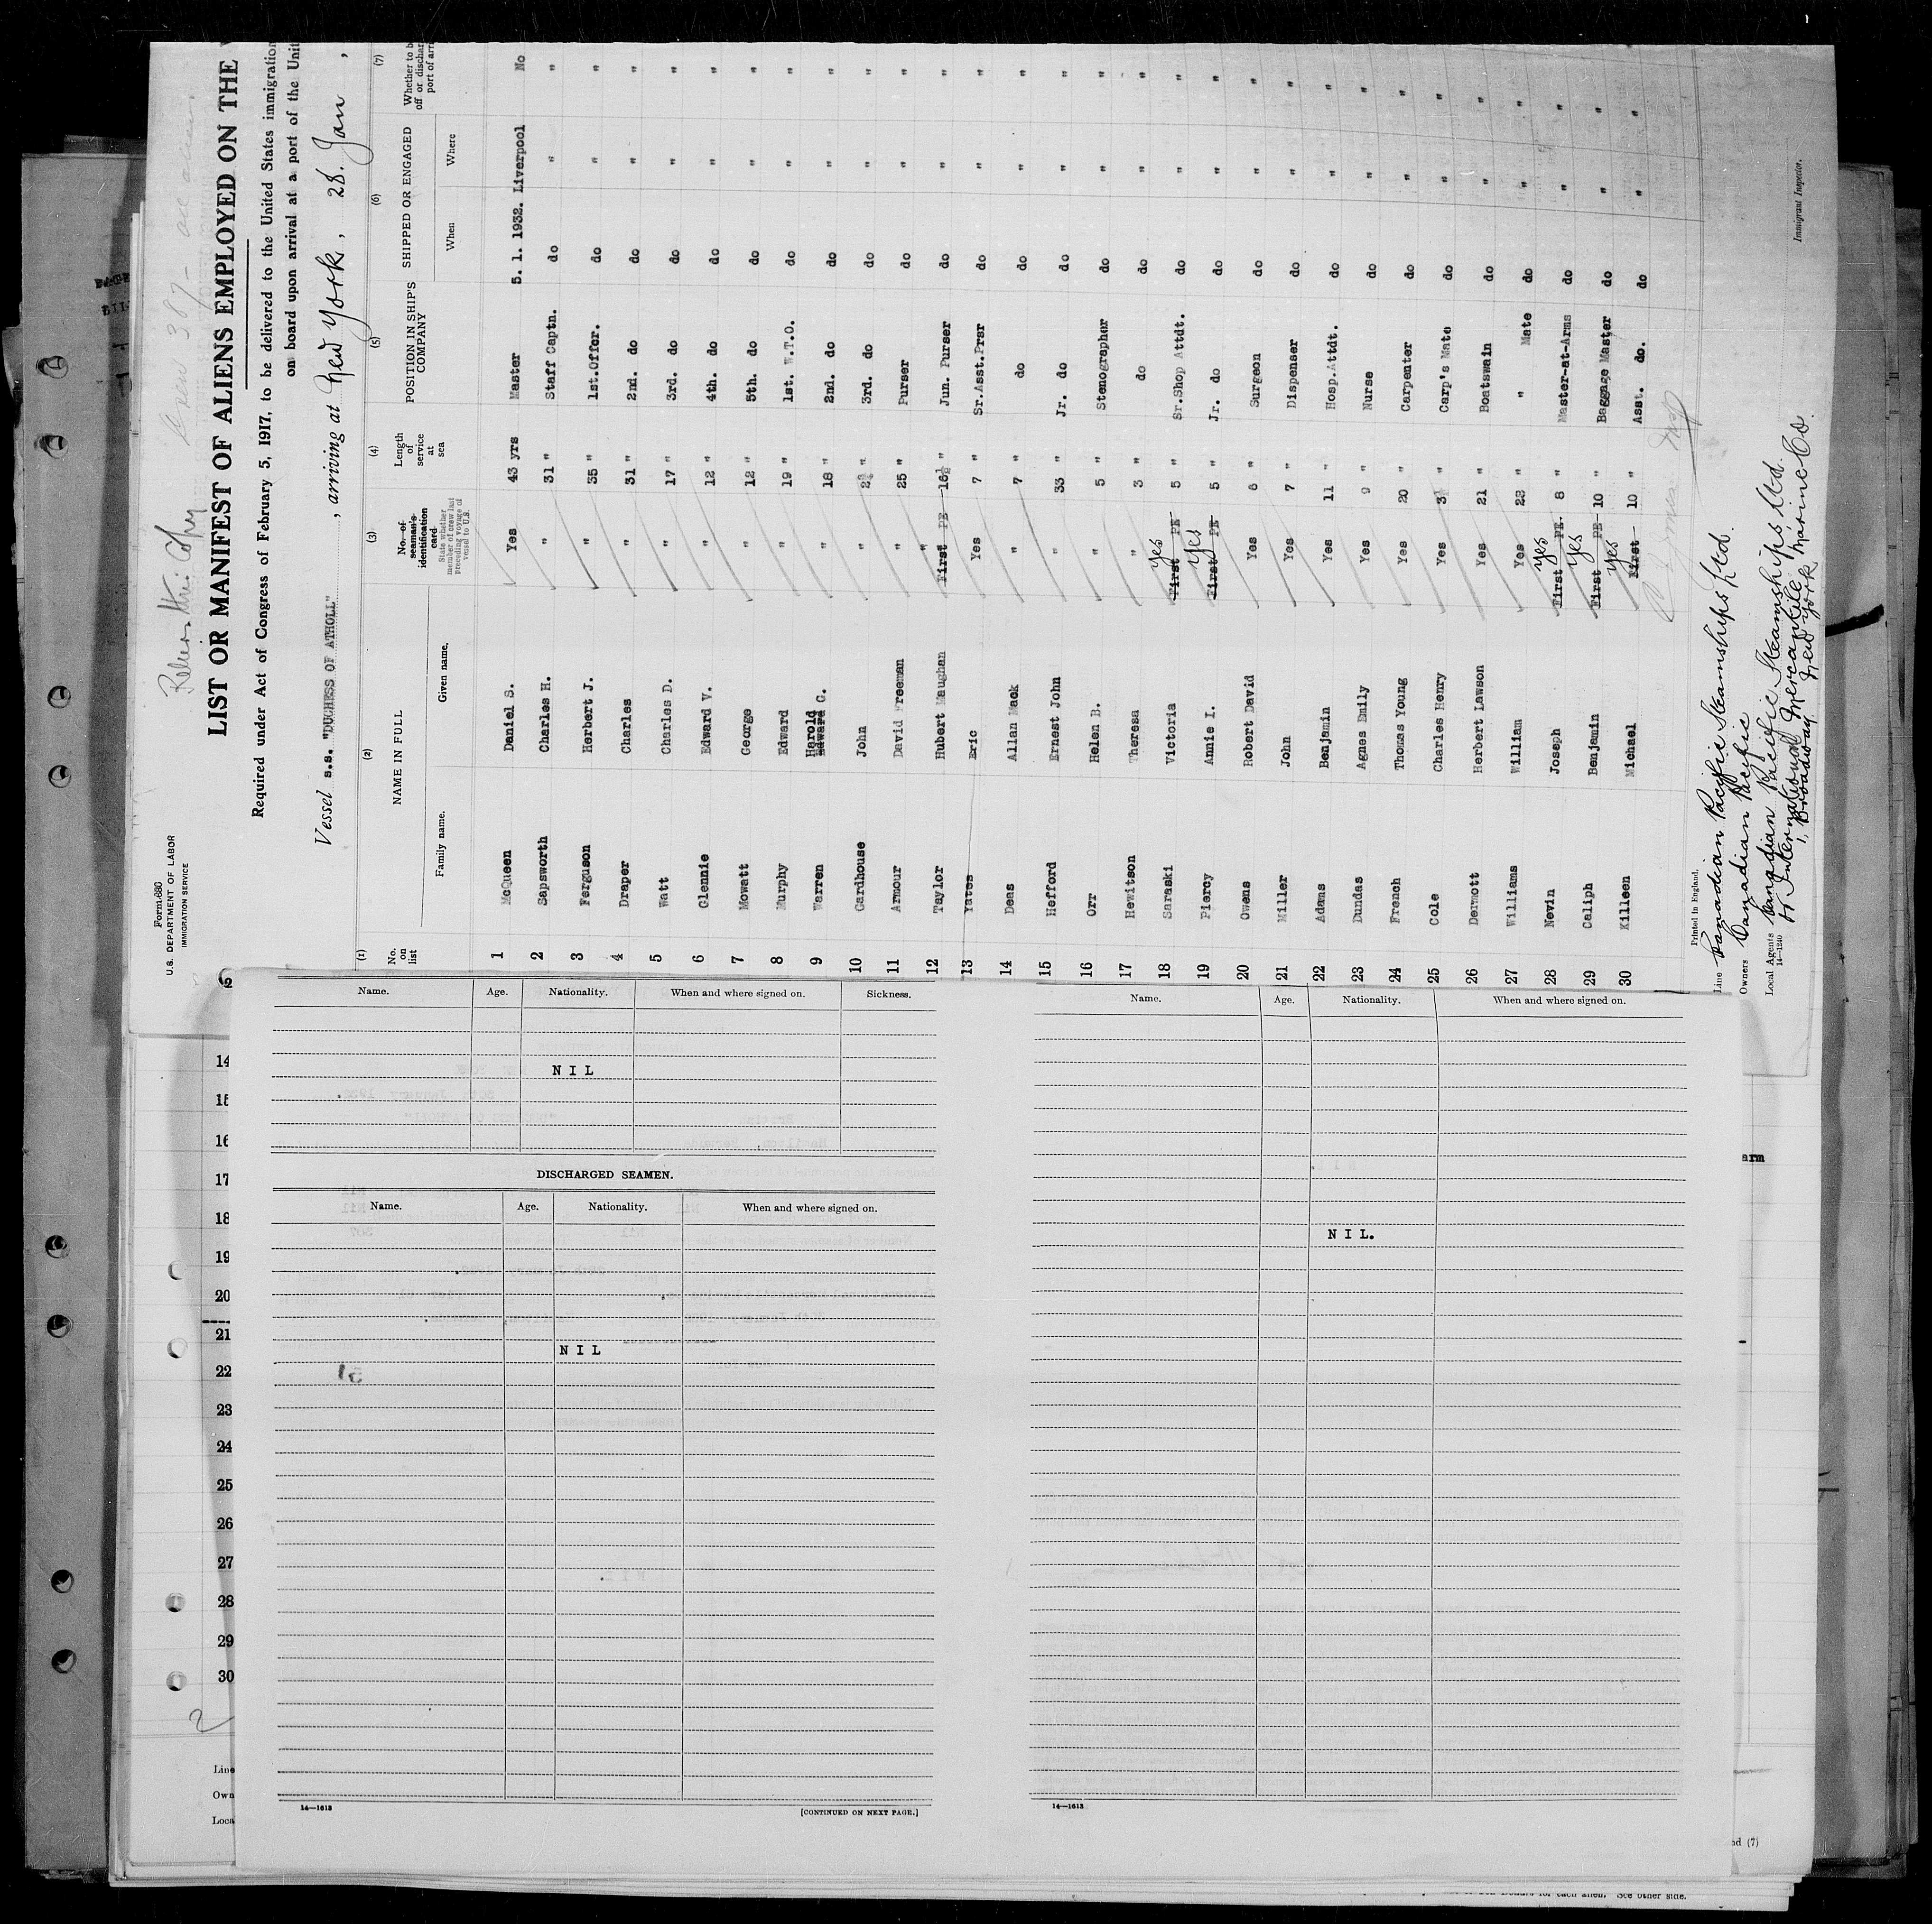 Form 680
U.S. DEPARTMENT OF LABOR
IMMIGRATION SERVICE
Crew 387 - all
LIST OR MANIFEST OF ALIENS EMPLOYED ON THE
Required under Act of Congress of February 5, 1917, to be delivered to the United States immigration
on board upon arrival at a port of the Unit
Vessel s.s. "DUCHESS OF ATHOLL", arriving at New York, 28. Jan,
(1) (2) (3) (4) (5) (6) (7)
No. on list NAME IN FULL No. of seaman's identification card Length of service at sea POSITION IN SHIP'S COMPANY SHIPPED OR ENGAGED Whether to b off or dischar port of arri
State whether member of crew last preceding voyage of vessel to U.S.
Family name. Given name. When Where
1 McQueen Daniel S. Yes 43 yrs Master 5. 1. 1932. Liverpool No
2 Sapsworth Charles H. " 31 " Staff Captn. do " "
3 Ferguson Herbert J. " 35 " 1st.Offcr. do " "
4 Draper Charles " 31 " 2nd. do do " "
5 Watt Charles D. " 17 " 3rd. do do " "
6 Glennie Edward V. " 12 " 4th. do do " "
7 Mowatt George " 12 " 5th. do do " "
8 Murphy Edward " 19 " 1st. W.T.O. do " "
9 Warren Harold Edward C. " 18 " 2nd. do do " "
10 Cardhouse John " " 3rd. do do " "
11 Armour David Freeman " 25 " Purser do " "
12 Taylor Hubert Maughan " First PE 16½ " Jun. Purser do " "
13 Yates Eric Yes 7 " Sr.Asst.Prsr do " "
14 Deas Allan Mack " 7 " do do " "
15 Hefford Ernest John " 33 " Jr. do do " "
16 Orr Helen B. " 5 " Stenographer do " "
17 Hewitson Theresa " 3 " do do " "
18 Saraski Victoria First PE yes 5 " Sr.Shop Attdt. do " "
19 Piercy Annie I. First PE yes 5 " Jr. do do " "
20 Owens Robert David Yes 6 " Surgeon do " "
21 Miller John Yes 7 " Dispenser do " "
22 Adams Benjamin Yes 11 " Hosp.Attdt. do " "
23 Dundas Agnes Emily Yes 9 " Nurse do " "
24 French Thomas Young Yes 20 " Carpenter do " "
25 Cole Charles Henry Yes 3½ " Carp's Mate do " "
26 Dermott Herbert Lawson Yes 21 " Boatswain do " "
27 Williams William Yes 23 " " Mate do " "
28 Nevin Joseph First PE. yes 8 " Master-at-Arms do " "
29 Caliph Benjamin First PE yes 10 " Baggage Master do " "
30 Killeen Michael First yes 10 " Asst. do. do " "
Printed in England.
Line Canadian Pacific Steamships Ltd.
Owners Canadian Pacific
Local Agents Canadian Pacific Steamships Ltd.
14-1240
International Mercantile Marine Co.
1, Broadway New York
Immigrant Inspector.
Name. Age. Nationality. When and where signed on. Sickness.
NIL
DISCHARGED SEAMEN.
Name. Age. Nationality. When and where signed on.
NIL
14—1613
[CONTINUED ON NEXT PAGE.]
Name. Age. Nationality. When and where signed on.
NIL.
14—1613
14
15
16
17
18
19
20
21
22
23
24
25
26
27
28
29
30
2
Line
Own
Loca
arm
nd (7)
for each alien. See other side.